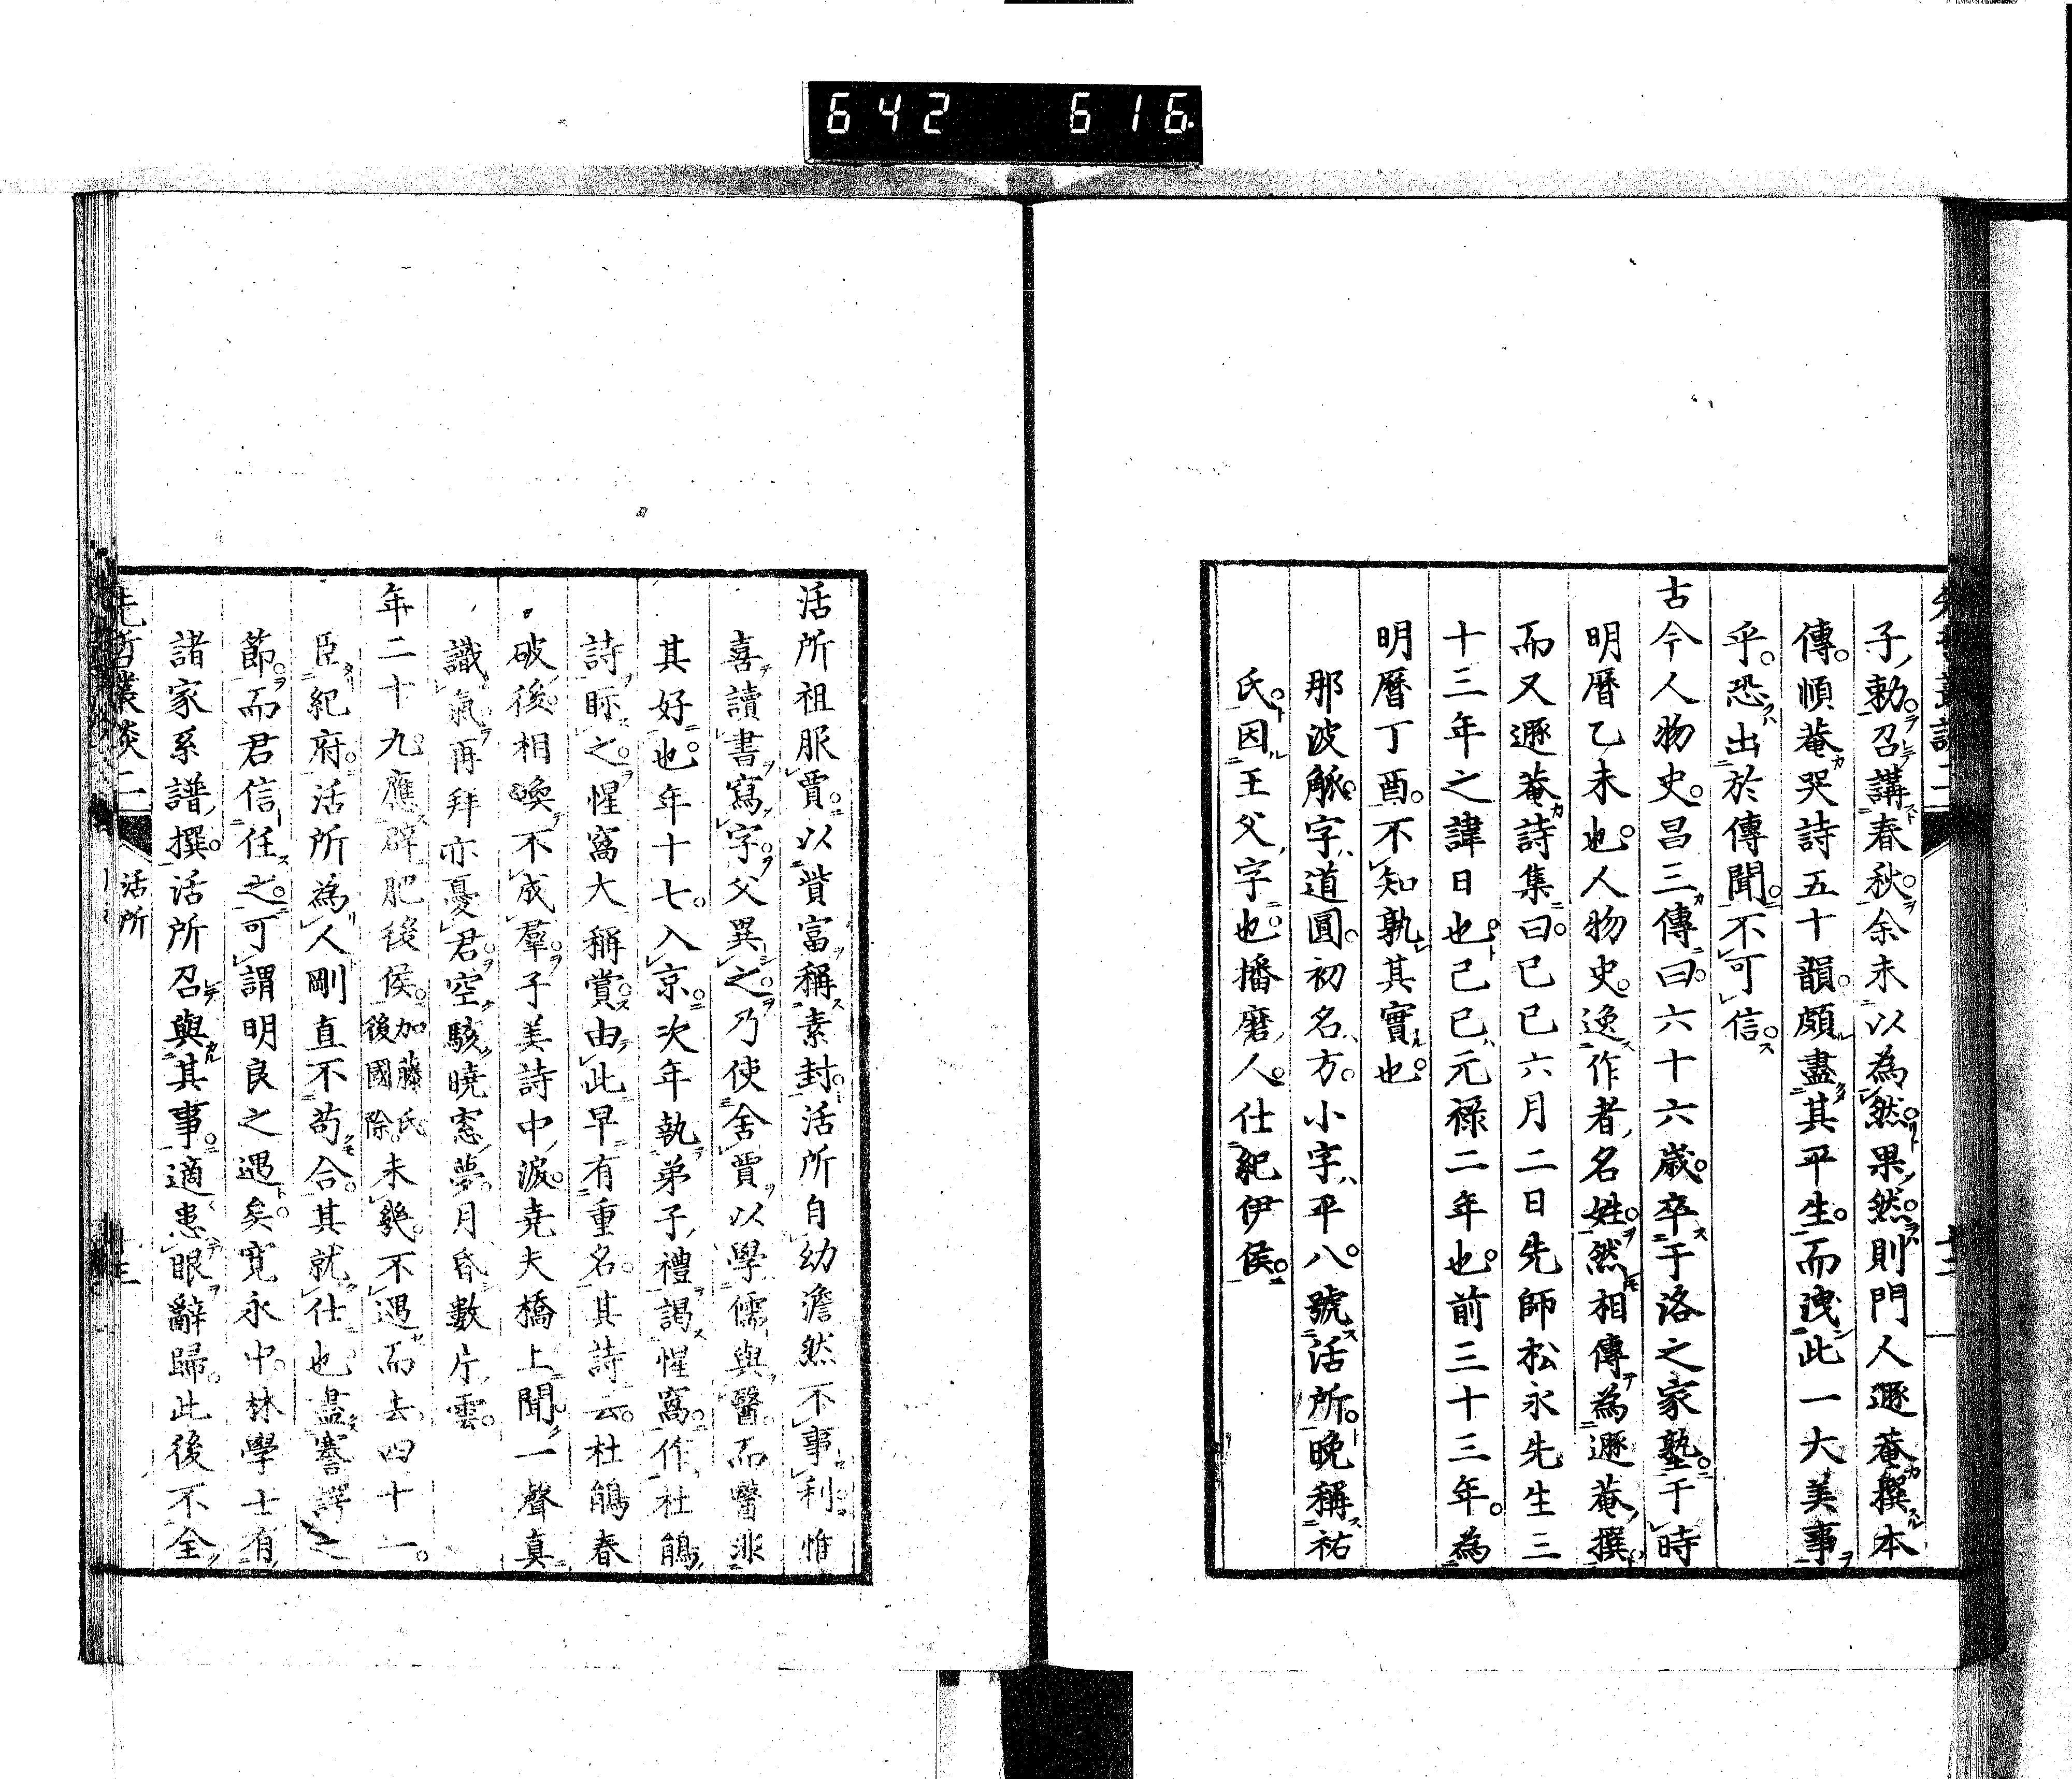 642 616
子勅召講春秋余未以為然果然則門人遯菴撰本
傳順菴哭詩五十韻頗盡其平生而洩此一大美事
乎恐出於傳聞不可信
古今人物史昌三傳曰六十六歲卒于洛之家塾于時
明曆乙未也人物史逸作者名姓然相傳為遯菴撰
而又遯菴詩集曰己巳六月二日先師松永先生三
十三年之諱日也己巳元祿二年也前三十三年為
明曆丁酉不知孰其實也
那波觚字道圓初名方小字平八號活所晚稱祐
氏因王父字也播磨人仕紀伊侯
活所祖服賈以貲富稱素封活所自幼澹然不事利惟
喜讀書寫字父異之乃使舍賈以學儒與醫而醫非
其好也年十七入京次年執弟子禮謁惺窩作杜鵑
詩眎之惺窩大稱賞由此早有重名其詩云杜鵑春
破後相喚不成羣子美詩中淚堯夫橋上聞一聲真
識氣再拜亦憂君空駭曉窻夢月昏數片雲
年二十九應辟肥後侯加藤氏後國除未幾不遇而去四十一
臣紀府活所為人剛直不苟合其就仕也盡謇諤之
節而君信任之可謂明良之遇矣寬永中林學士有
諸家系譜撰活所召與其事適患眼辭歸此後不全
先哲叢談二
活所